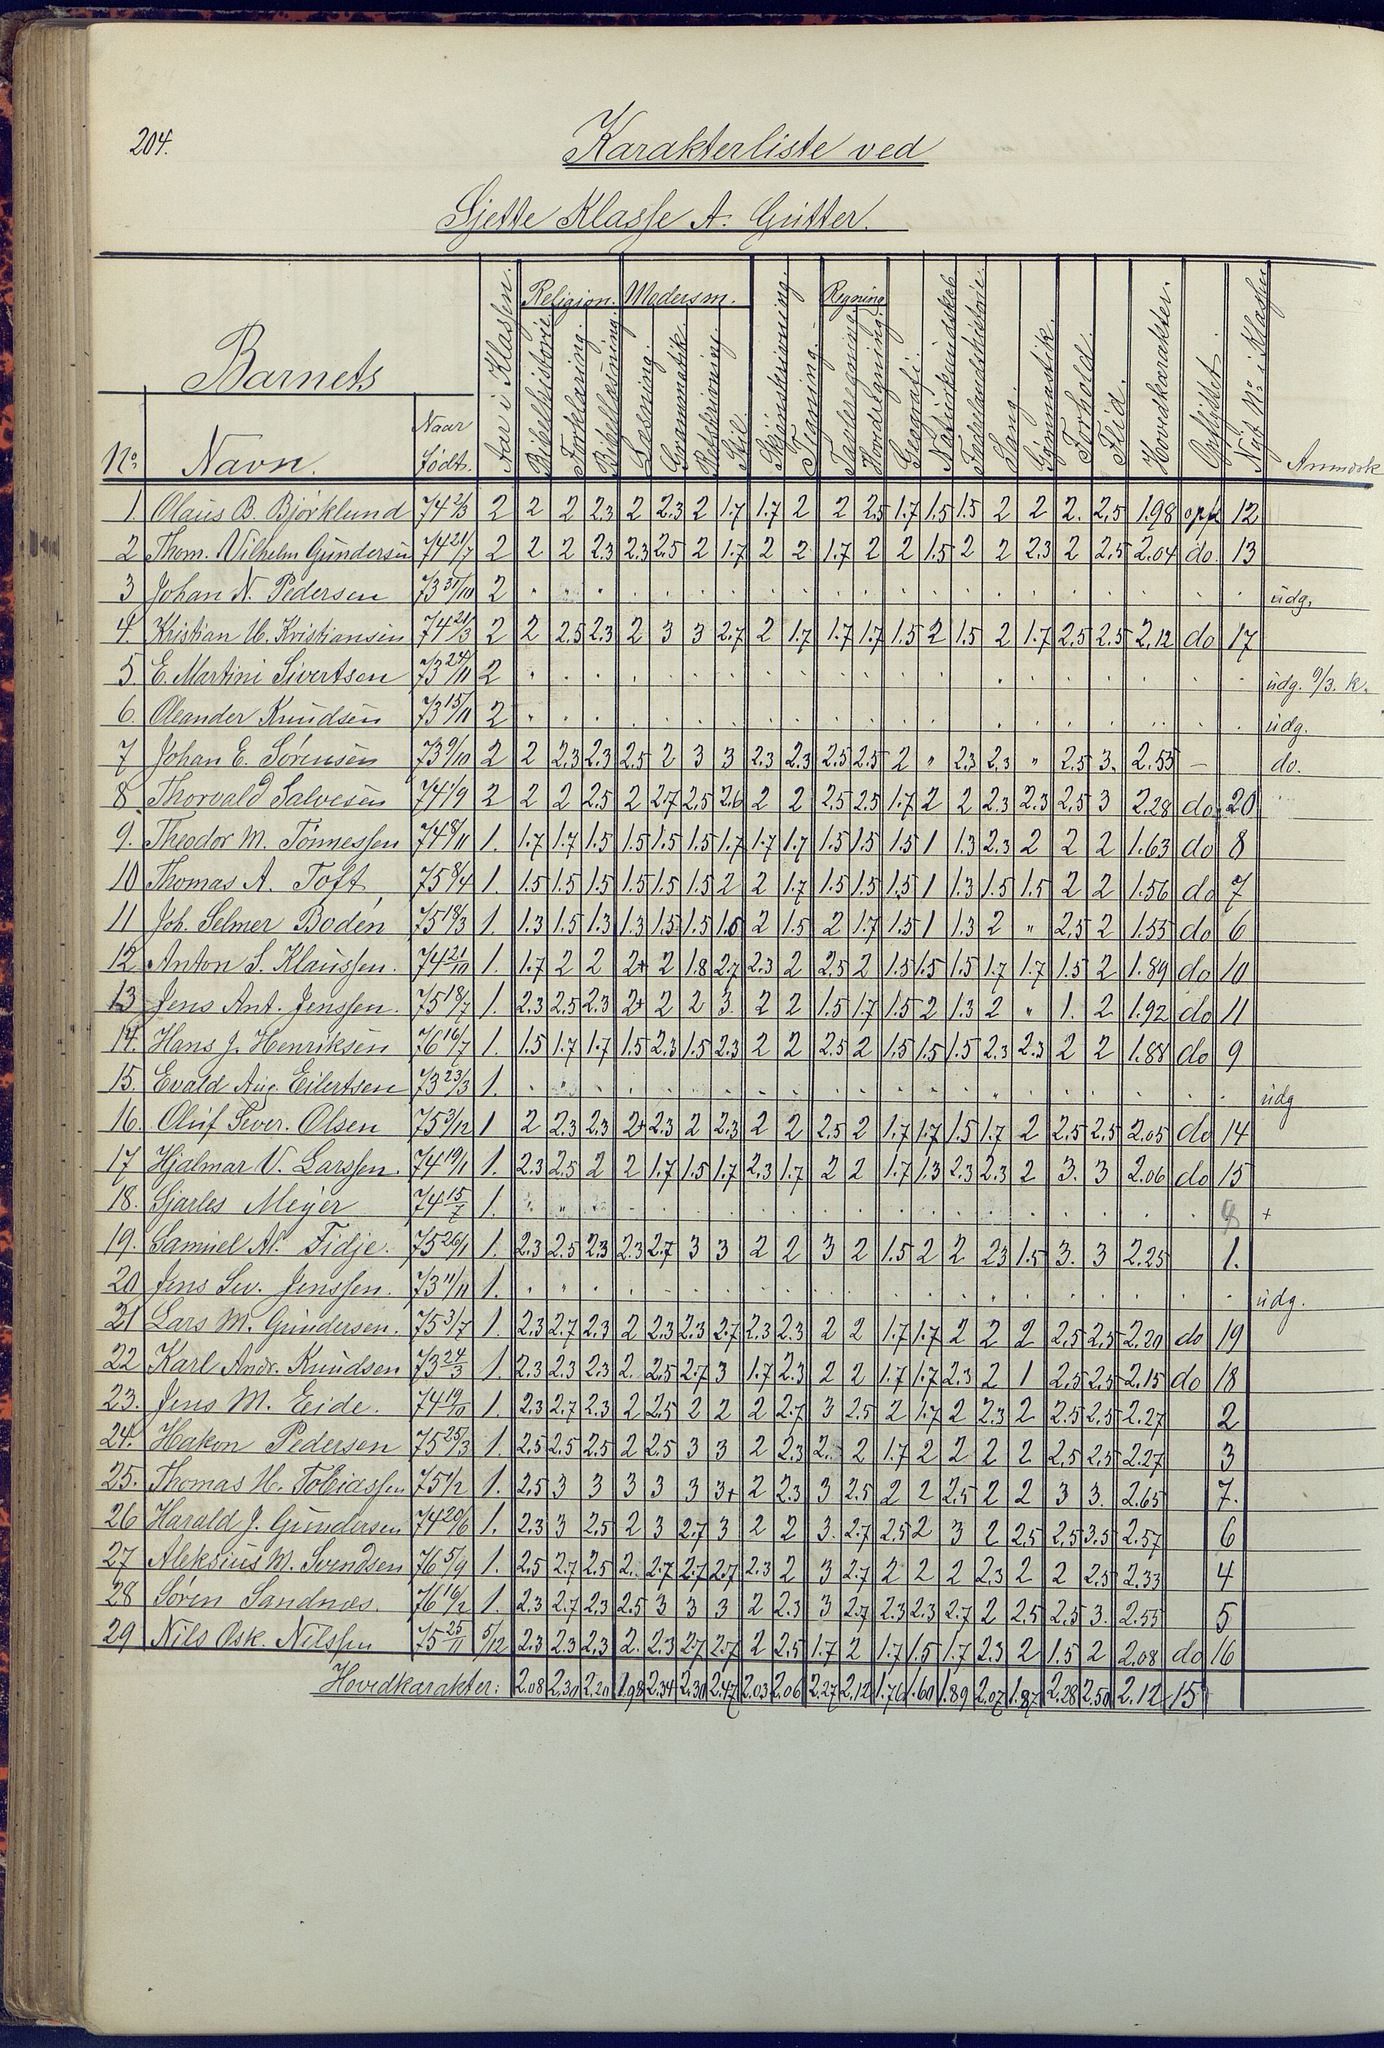 204.
Karakterliste ved
Sjette Klasse A. Gutter.
Barnets
No. Navn. Naar Født. Aar i Klassen. Religion. Bibelhistorie. Forklaring. Bibellæsning. Modersm. Læsning. Grammatik. Retskrivning. Stil. Skjønskrivning. Tegning. Regning. Tavleregning. Hovedregning. Geografi. Naturkundskab. Fædrelandshistorie. Sang. Gymnastik. Forhold. Flid. Hovedkarakter. Opflyttet. Nyt No i Klassen Anmærk
1. Olaus B. Bjørklund 74 2/3 2 2 2 2.3 2 2.3 2 1.7 1.7 2 2 2.5 1.7 1.5 1.5 2 2 2. 2.5 1.98 opfl 12
2 Thom. Vilhelm Gundersen 74 21/7 2 2 2 2.3 2.3 2.5 2 1.7 2 2 1.7 2 2 1.5 2 2 2.3 2 2.5 2.04 do. 13
3 Johan N. Pedersen 73 31/10 2 udg.
4. Kristian U. Kristiansen 74 21/3 2 2 2.5 2.3 2 3 3 2.7 2 1.7 1.7 1.7 1.5 2 1.5 2 1.7 2.5 2.5 2.12 do 17
5. E. Martini Sivertsen 73 24/11 2 udg. 9/3. k.
6. Oleander Knudsen 73 15/11 2 udg.
7 Johan E. Sørensen 73 9/10 2 2 2.3 2.3 2.5 2 3 3 2.3 2.3 2.5 2.5 2 " 2.3 2.3 " 2.5 3. 2.53 — do.
8 Thorvald Salvesen 74 1/9 2 2 2 2.5 2 2.7 2.5 2.6 2 2 2.5 2.5 1.7 2 2 2.3 2.3 2.5 3 2.28 do. 20
9. Theodor M. Tønnessen 74 8/11 1. 1.7 1.7 1.5 1.5 1.5 1.5 1.7 1.7 1.7 1.5 1.5 1.5 1 1.3 2.3 2 2 2 1.63 do 8
10 Thomas A. Toft 75 8/4 1. 1.5 1.5 1.5 1.5 1.5 1.5 2 2 1.7 1.5 1.5 1.5 1 1.3 1.5 1.5 2 2 1.56 do 7
11 Joh. Selmer Bodén 75 18/3 1. 1.3 1.5 1.3 1.3 1.5 1.5 1.5 2 1.5 2 1.7 1.5 1 1.3 2 " 2.5 2 1.55 do 6
12 Anton S. Klaussen. 74 21/10 1. 1.7 2 2 2+ 2 1.8 2.7 2.3 2 2.5 2 1.5 1.5 1.5 1.7 1.7 1.5 2 1.89 do 10
13 Jens Ant. Jenssen. 75 18/7 1. 2.3 2.5 2.3 2+ 2 2 3. 2 2 1.5 1.7 1.5 2 1.3 2 " 1. 2 1.92 do 11
14. Hans J. Henriksen 76 16/7 1. 1.5 1.7 1.7 1.5 2.3 1.5 2.3 2 2 2.5 2 1.5 1.5 1.5 2.3 2.3 2 2 1.88 do 9
15. Evald Aug. Eilertsen 73 23/3 1. udg
16. Oluf Sever. Olsen 75 3/12 1 2 2.3 2.3 2+ 2.3 2 2.3 2 2 2.5 2 1.7 1.7 1.5 1.7 2 2.5 2.5 2.05 do 14
17 Hjalmar V. Larssen. 74 19/1 1. 2.3 2.5 2 2 1.7 1.5 1.7 2.3 1.7 2 2 1.7 1.3 2.3 2.3 2 3. 3 2.06 do 15
18. Sjarles Meyer 74 15/7 1. +
19. Samuel N. Fidje. 75 26/1 1. 2.3 2.5 2.3 2.3 2.7 3 3 2 2 3 2 1.5 2 2 2.3 1.5 3. 3 2.25 1.
20 Jens Sev. Jenssen. 73 11/11 1. udg.
21 Lars M. Gundersen. 75 3/7 1. 2.3 2.7 2.3 2 2.3 2.3 2.7 2.3 2.3 2 2 1.7 1.7 2 2 2 2.5 2.5 2.20 do 19
22 Karl Andr. Knudsen 73 24/3 1. 2.3 2.3 2.3 2. 2.5 2.7 3 1.7 2.3 2 2 1.7 1.7 2.3 2 1 2.5 2.5 2.15 do 18
23. Jens M. Eide. 74 19/11 1. 2.3 2.7 2.3 2 2.5 2 2 2 2.7 3 2.5 2 1.7 2 2.3 2 2.5 2.5 2.27 2
24. Hakon Pedersen 75 25/3 1. 2.5 2.5 2.5 2 2.5 3 3 2 2.3 2. 2 1.7 2 2 2 2 2.5 2.5 2.27 3
25. Thomas U. Tobiassen 75 1/2 1. 2.5 3 3 3 3 3 3+ 2 2.3 3 2.5 2 2 2.5 2 2 3 3. 2.65 7.
26 Harald J. Gundersen 74 20/6 1. 2.3 3 2.5 2 3 2.7 3 2 2 3. 2.7 2.5 2 3 2 2.5 2.5 3.5 2.57 6
27 Aleksius M. Svendsen 76 5/9 1. 2.5 2.7 2.5 2. 2.7 2.7 2.7 2.3 2 3 2.7 2 2 2 2.3 2 2 2.5 2.33 4
28 Søren Sandnæs. 76 16/2 1. 2.3 2.7 2.3 2.5 3 3 3 2 2.3 3 2.7 2.3 2.3 2.7 2 2.5 2.5 3. 2.55 5
29 Nils Osk. Nilssen 75 25/11 5/12 2.3 2.3 2.3 2. 2.3 2.7 2.7 2 2.5 1.7 2 1.7 1.5 1.7 2.3 2 1.5 2 2.08 do 16
Hovedkarakter: 2.08 2.30 2.20 1.98 2.34 2.30 2.47 2.03 2.06 2.27 2.12 1.76 1.60 1.89 2.07 1.87 2.28 2.50 2.12 15